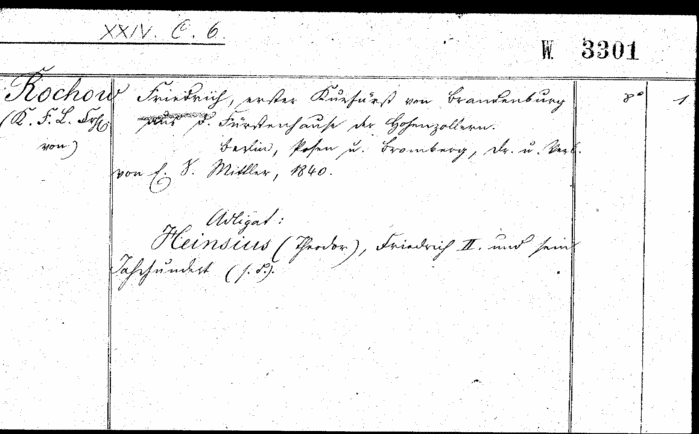 XXIV. C. 6.
W 3301
Rochow Friedrich, erster Kurfürst von Brandenburg 8° 1
(K. F. L. Frh. aus d. Fürstenhause der Hohenzollern.
von) Berlin, Posen u. Bromberg, Dr. u. Verl.
von E. S. Mittler, 1840.
Adligat:
Heinsius (Theodor), Friedrich II. und sein
Jahrhundert (s. d.).